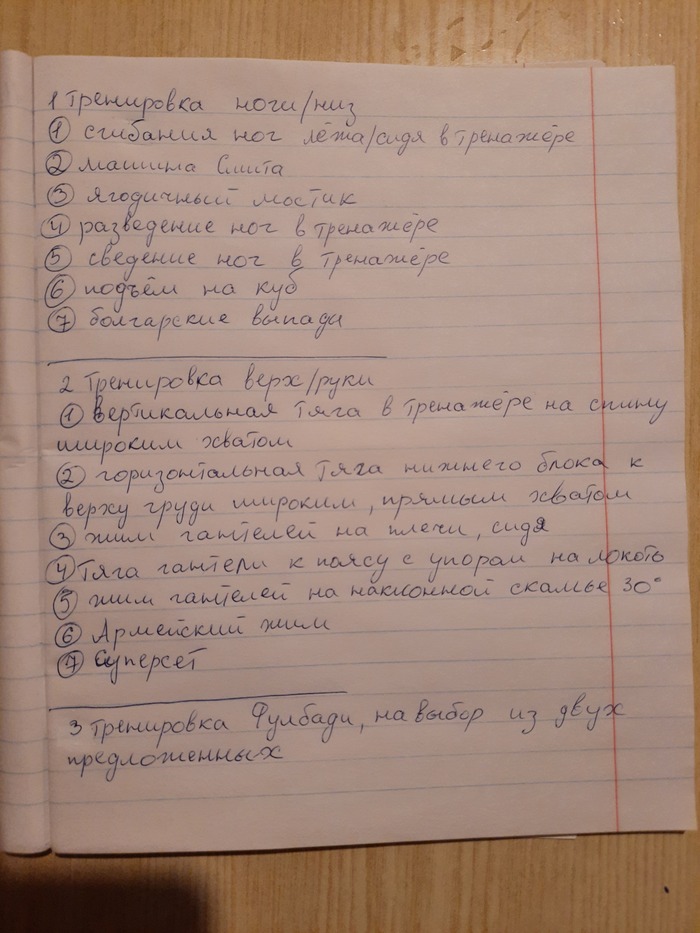 1 Тренировка ноги/низ
① сгибания ног лёжа/сидя в тренажёре
② машина Смита
③ ягодичный мостик
④ разведение ног в тренажёре
⑤ сведение ног в тренажёре
⑥ подъём на куб
⑦ болгарские выпади
2 Тренировка верх/руки
① Вертикальная тяга в тренажёре на спину
широким хватом
② горизонтальная тяга нижнего блока к
верху груди широким, прямым хватом
③ жим гантелей на плечи, сидя
④ Тяга гантели к поясу с упором на локоть
⑤ жим гантелей на наклонной скамье 30°
⑥ Армейский жим
⑦ Суперсет
3 Тренировка Фулбади, на выбор из двух
предложенных